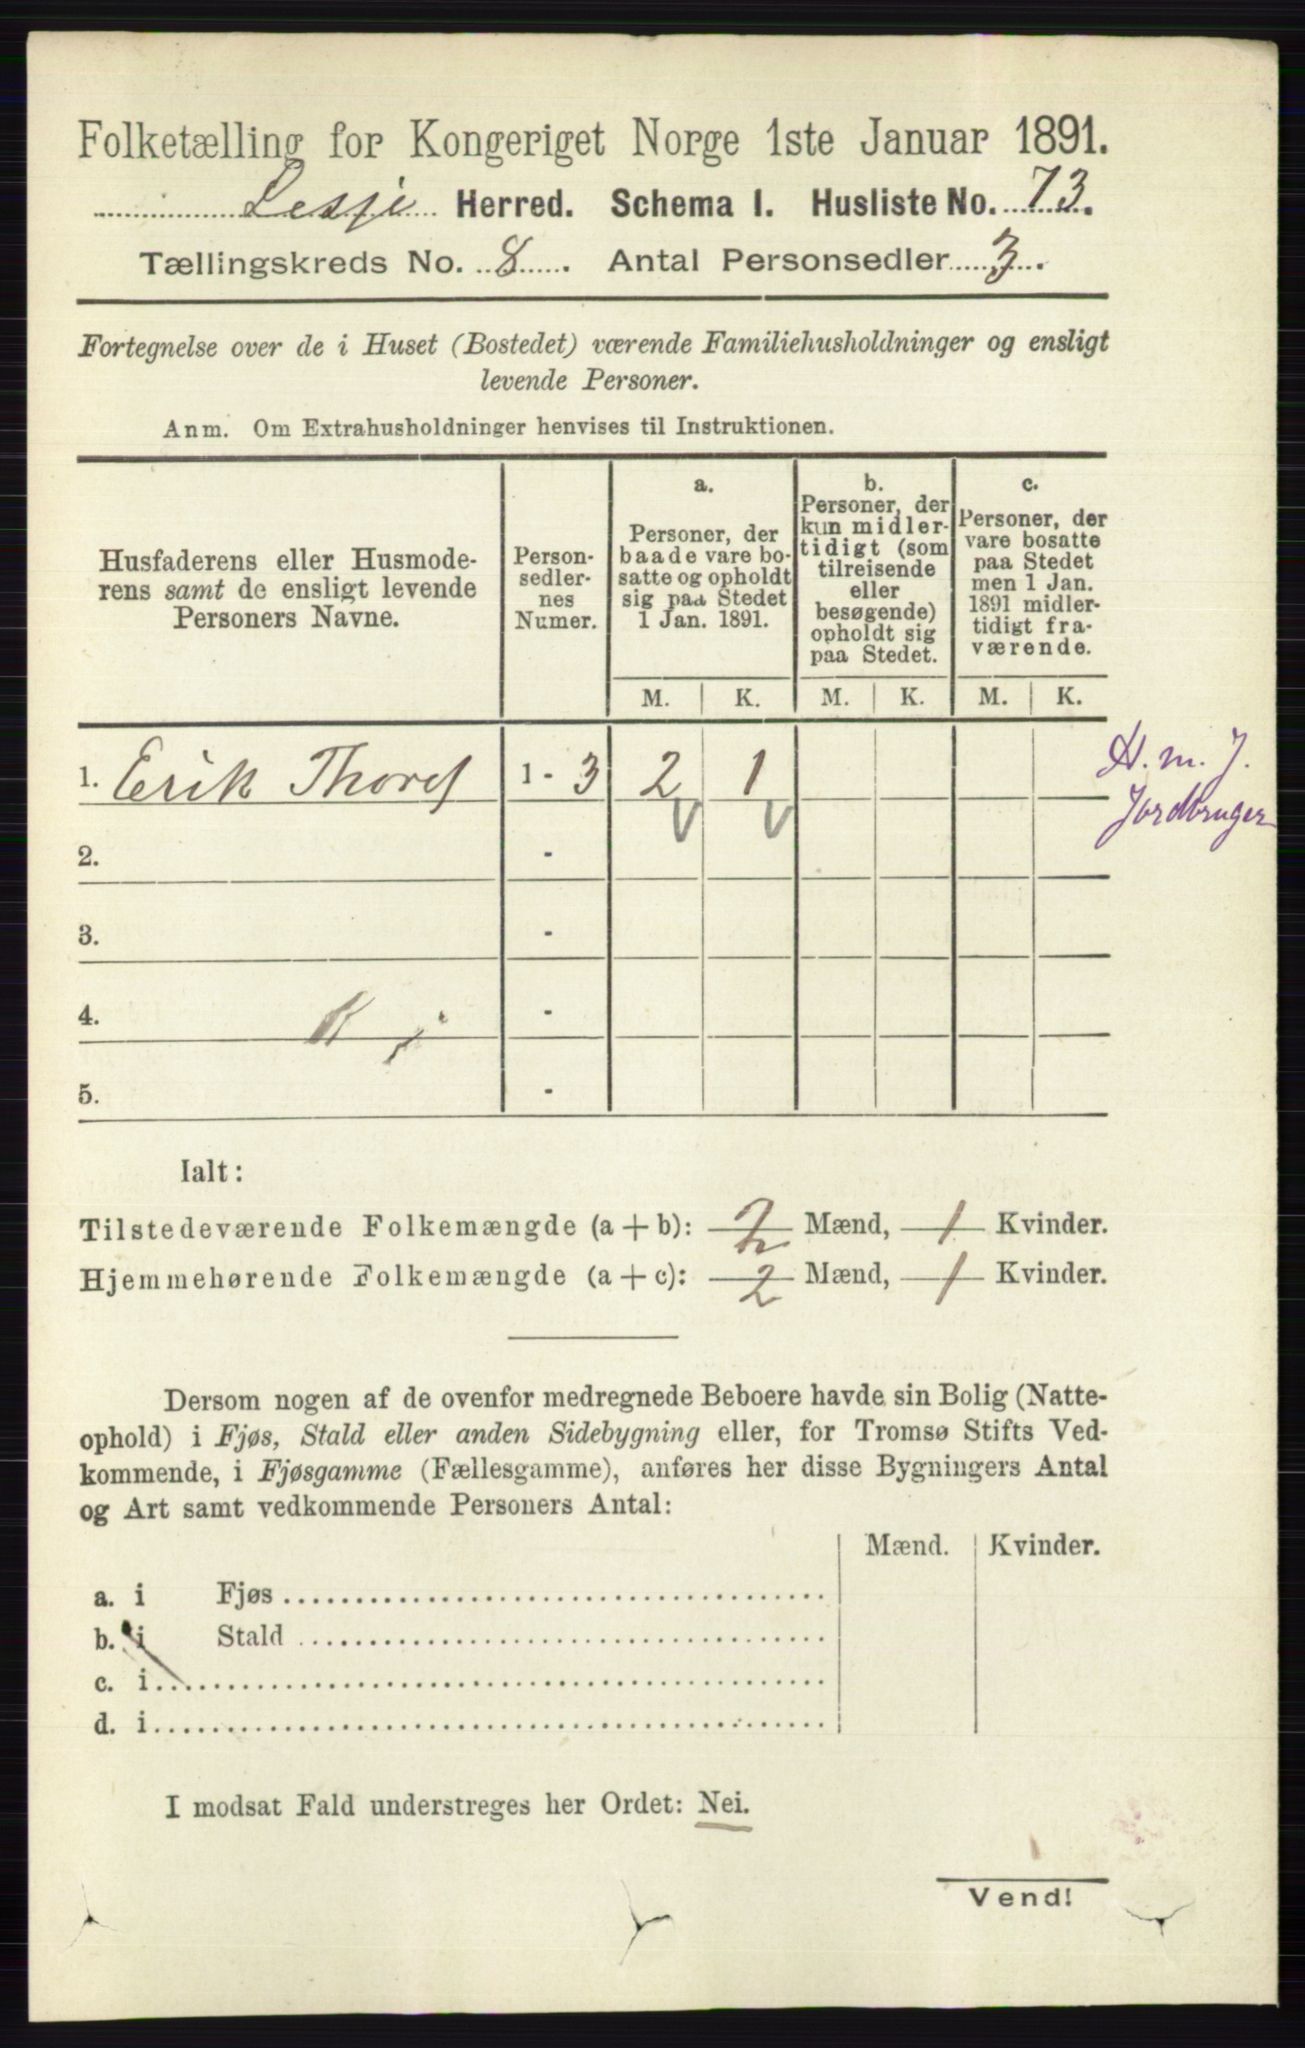 Folketælling for Kongeriget Norge 1ste Januar 1891.
Lesje Herred. Schema I. Husliste No. 73.
Tællingskreds No. 8. Antal Personsedler 3.
Fortegnelse over de i Huset (Bostedet) værende Familiehusholdninger og ensligt
levende Personer.
Anm. Om Extrahusholdninger henvises til Instruktionen.
Husfaderens eller Husmode-
rens samt de ensligt levende
Personers Navne.
Person-
sedler-
nes
Numer.
a.
Personer, der
baade vare bo-
satte og opholdt
sig paa Stedet
1 Jan. 1891.
b.
Personer, der
kun midler-
tidigt (som
tilreisende
eller
besøgende)
opholdt sig
paa Stedet.
c.
Personer, der
vare bosatte
paa Stedet
men 1 Jan.
1891 midler-
tidigt fra-
værende.
M. K. M. K. M. K.
1. Erik Thores 1 - 3 2 1
H. m. J.
Jordbruger
2. -
3. -
4. -
5. -
Ialt:
Tilstedeværende Folkemængde (a + b): 2 Mænd, 1 Kvinder.
Hjemmehørende Folkemængde (a + c): 2 Mænd, 1 Kvinder.
Dersom nogen af de ovenfor medregnede Beboere havde sin Bolig (Natte-
ophold) i Fjøs, Stald eller anden Sidebygning eller, for Tromsø Stifts Ved-
kommende, i Fjøsgamme (Fællesgamme), anføres her disse Bygningers Antal
og Art samt vedkommende Personers Antal:
Mænd. Kvinder.
a. i Fjøs
b. i Stald
c. i
d. i
I modsat Fald understreges her Ordet: Nei.
Vend!